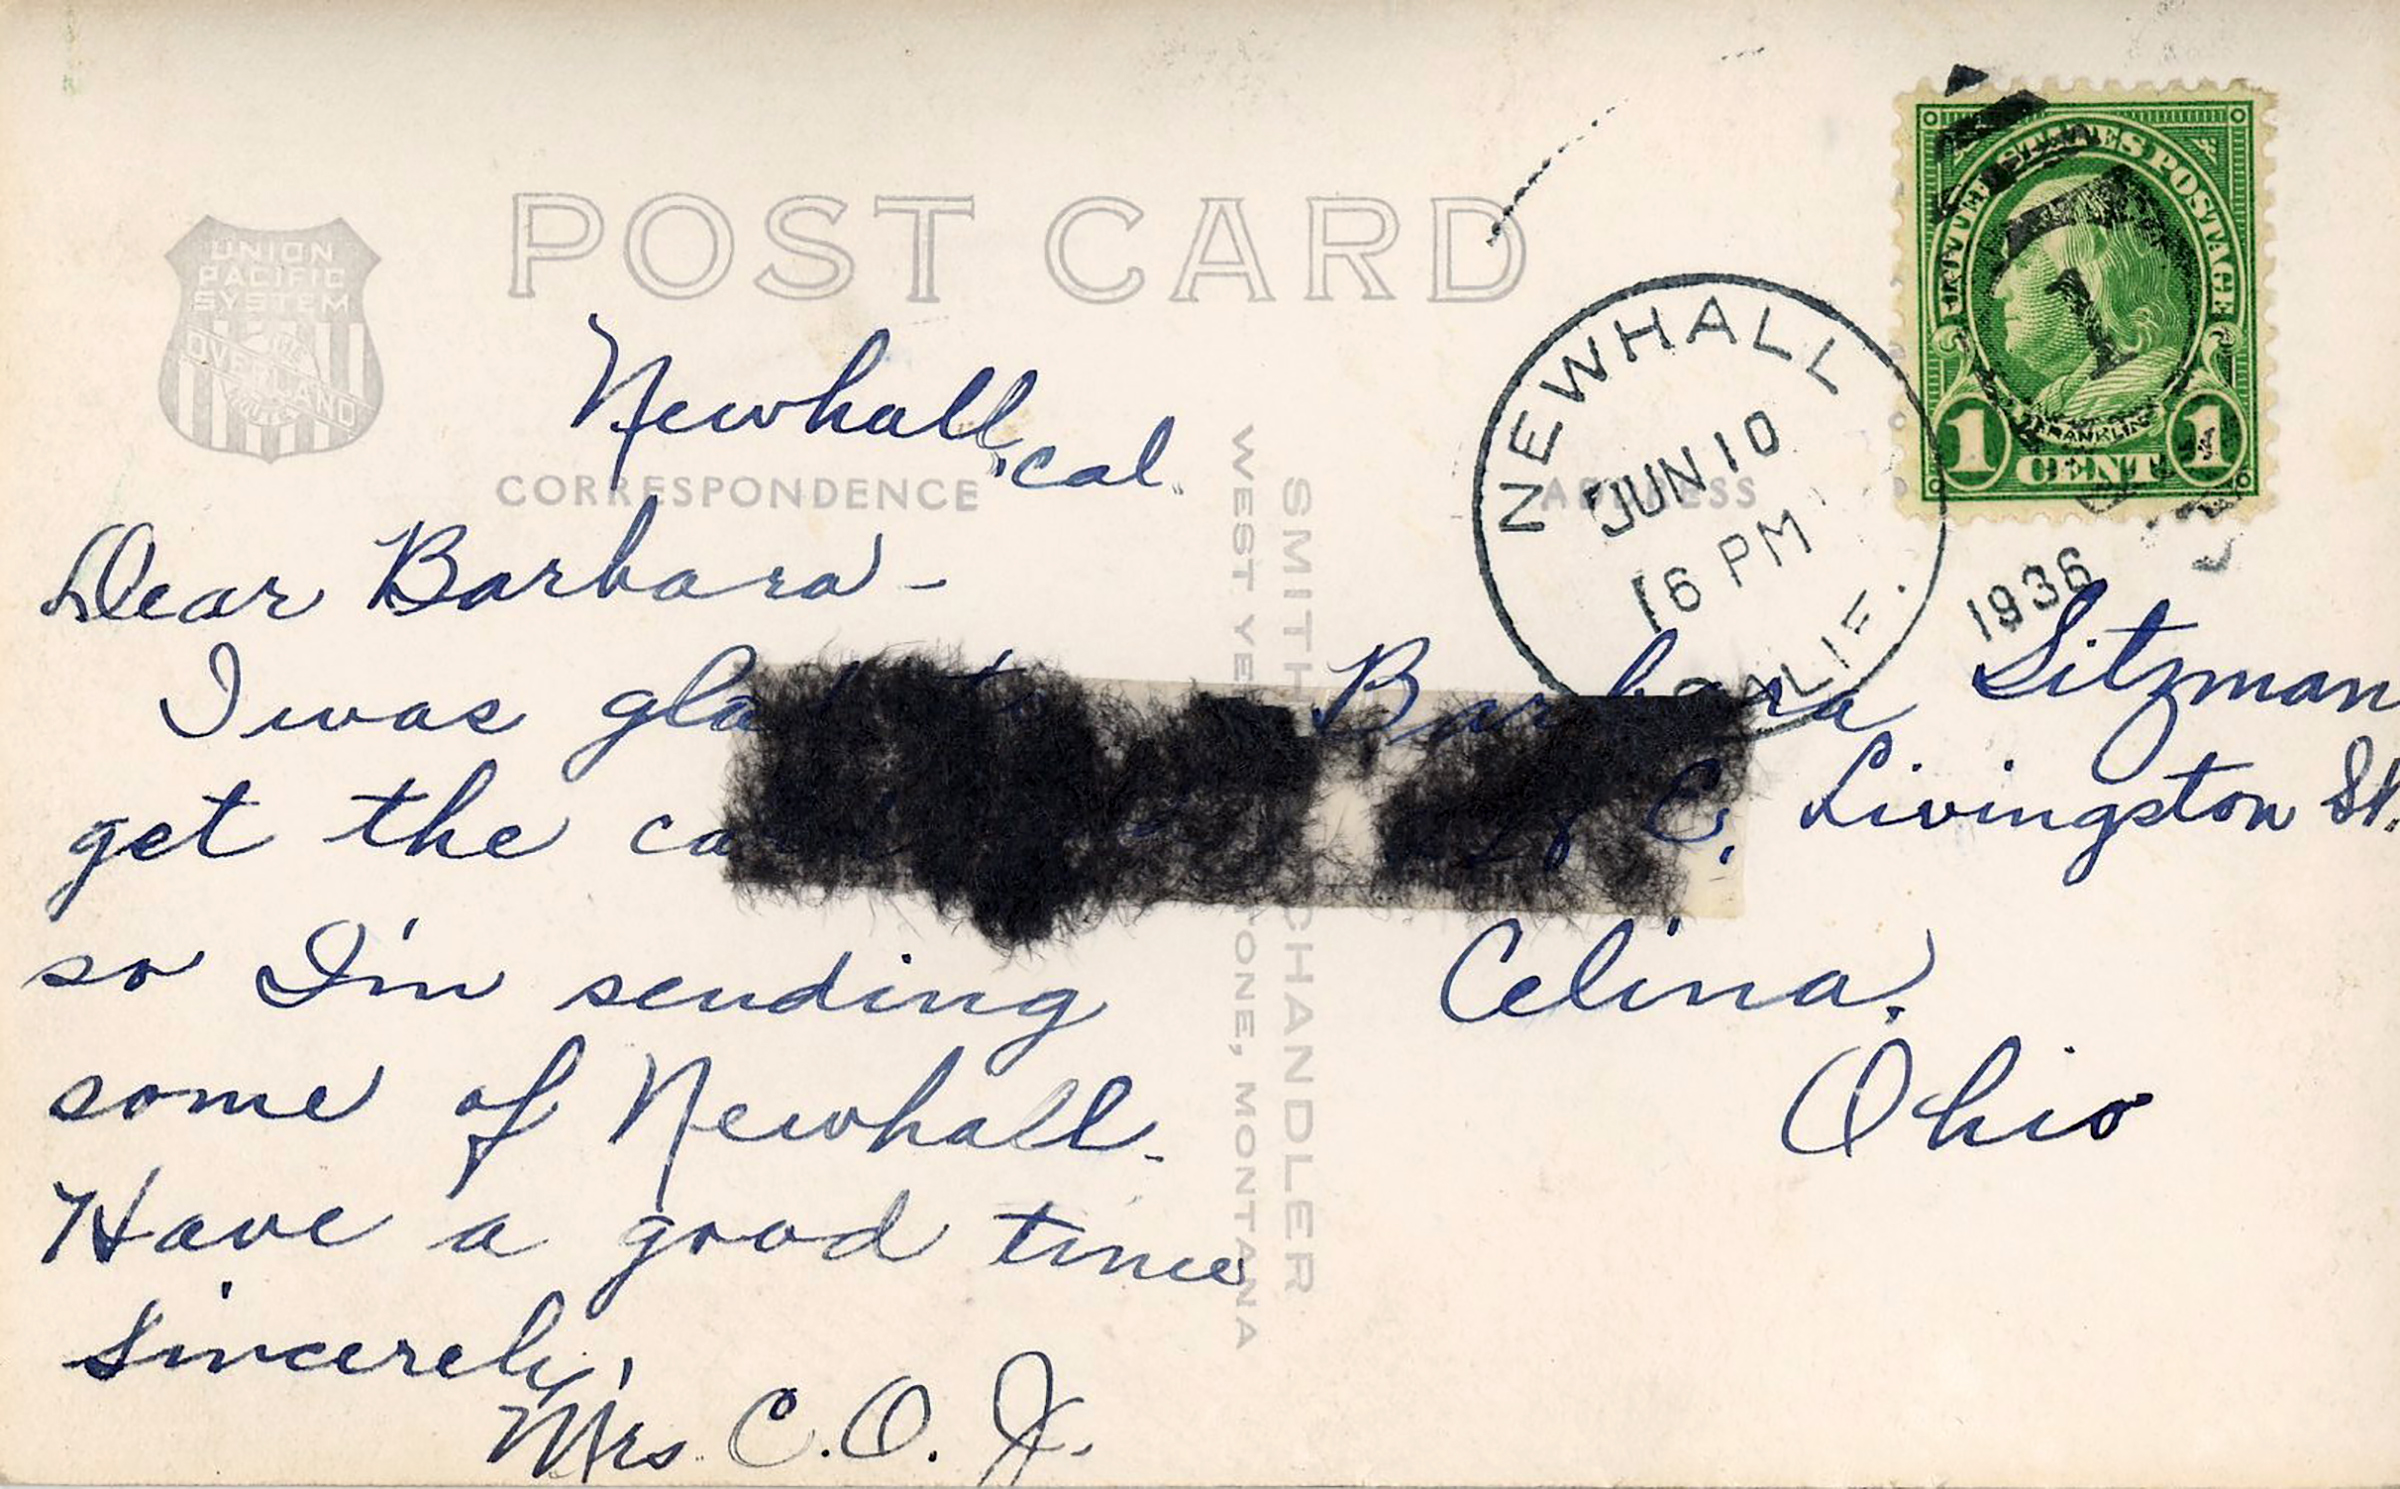 POST CARD
UNION
PACIFIC
SYSTEM
OVERLAND
CORRESPONDENCE
ADDRESS
Newhall, Cal.
Dear Barbara -
I was glad to
get the
so I'm sending
some of Newhall.
Have a good time
Sincerely,
Mrs. C. O. J.
SMITH CHANDLER
WEST YE ONE, MONTANA
NEWHALL
JUN 10
6 PM
CALIF.
1936
UNITED STATES POSTAGE
1
FRANKLIN
1 CENT 1
Barbara Sitzman
E. Livingston St.
Celina,
Ohio